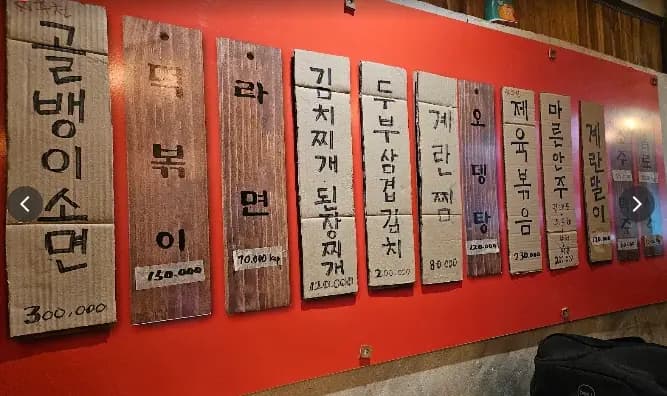 골뱅이소면
300,000
떡볶이
150.000
라면
70.000
김치찌개 된장찌개
120.000
두부삼겹김치
200,000
계란찜
80.000
오뎅탕
120.000
제육볶음
230.000
마른안주
계란말이